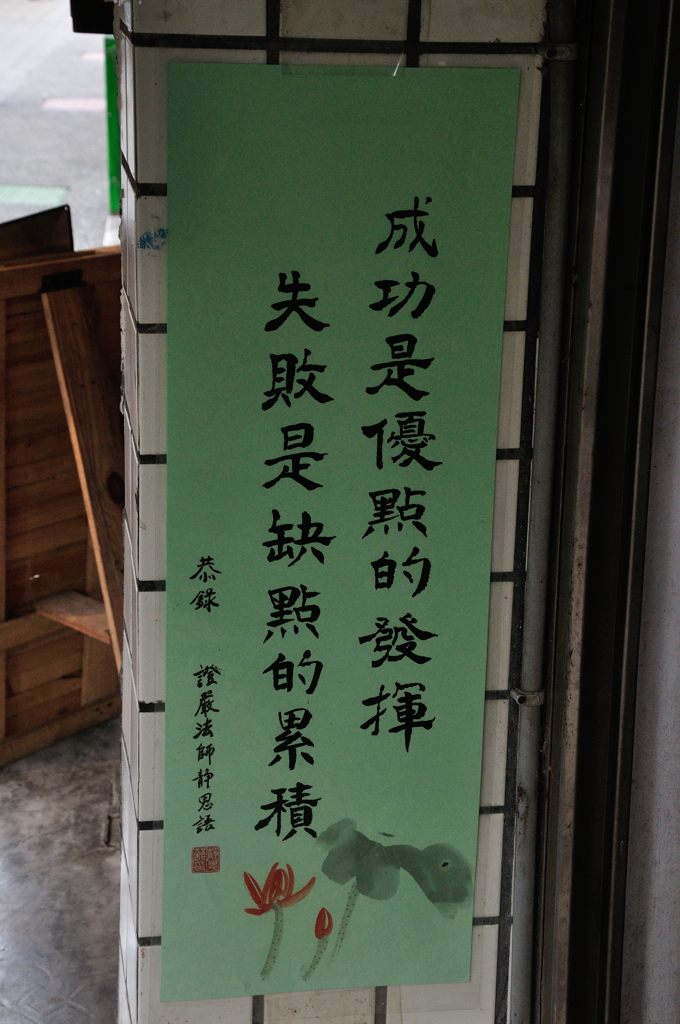 成功是優點的發揮
失敗是缺點的累積
恭錄 證嚴法師靜思語